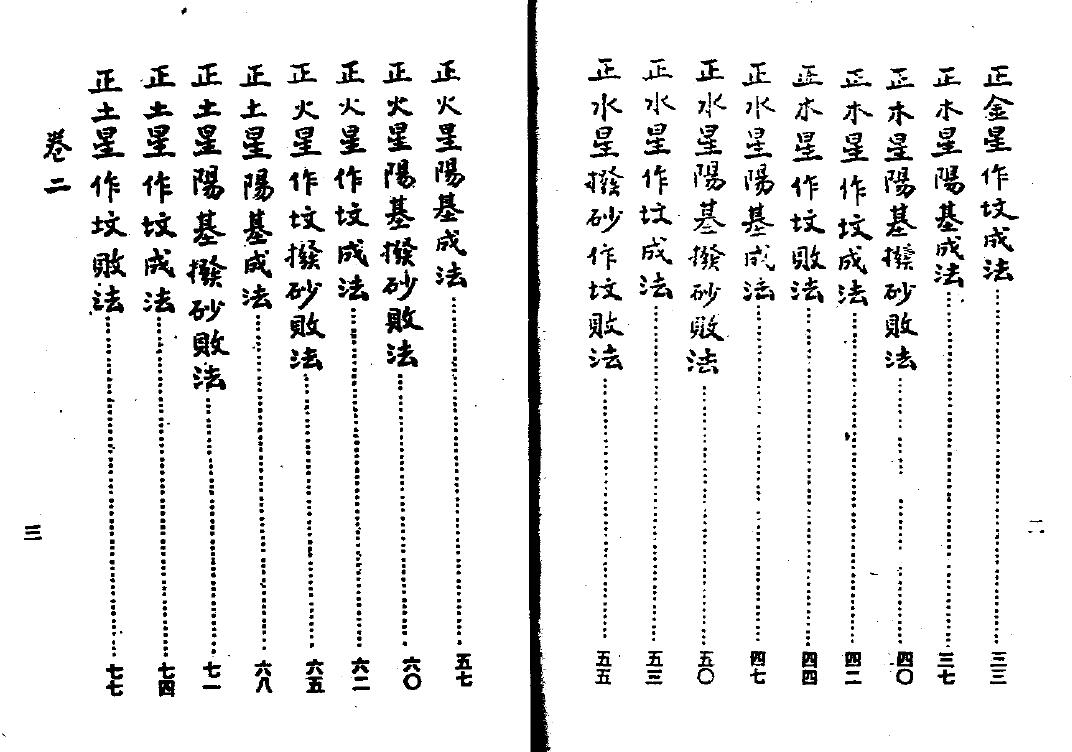 正金星作坟成法……三三
正木星陽基成法……三七
正木星陽基撥砂敗法……四〇
正木星作坟成法……四二
正木星作坟敗法……四四
正水星陽基成法……四七
正水星陽基撥砂敗法……五〇
正水星作坟成法……五三
正水星撥砂作坟敗法……五五
二
正火星陽基成法……五七
正火星陽基撥砂敗法……六〇
正火星作坟成法……六二
正火星作坟撥砂敗法……六五
正土星陽基成法……六八
正土星陽基撥砂敗法……七一
正土星作坟成法……七四
正土星作坟敗法……七七
卷二
三